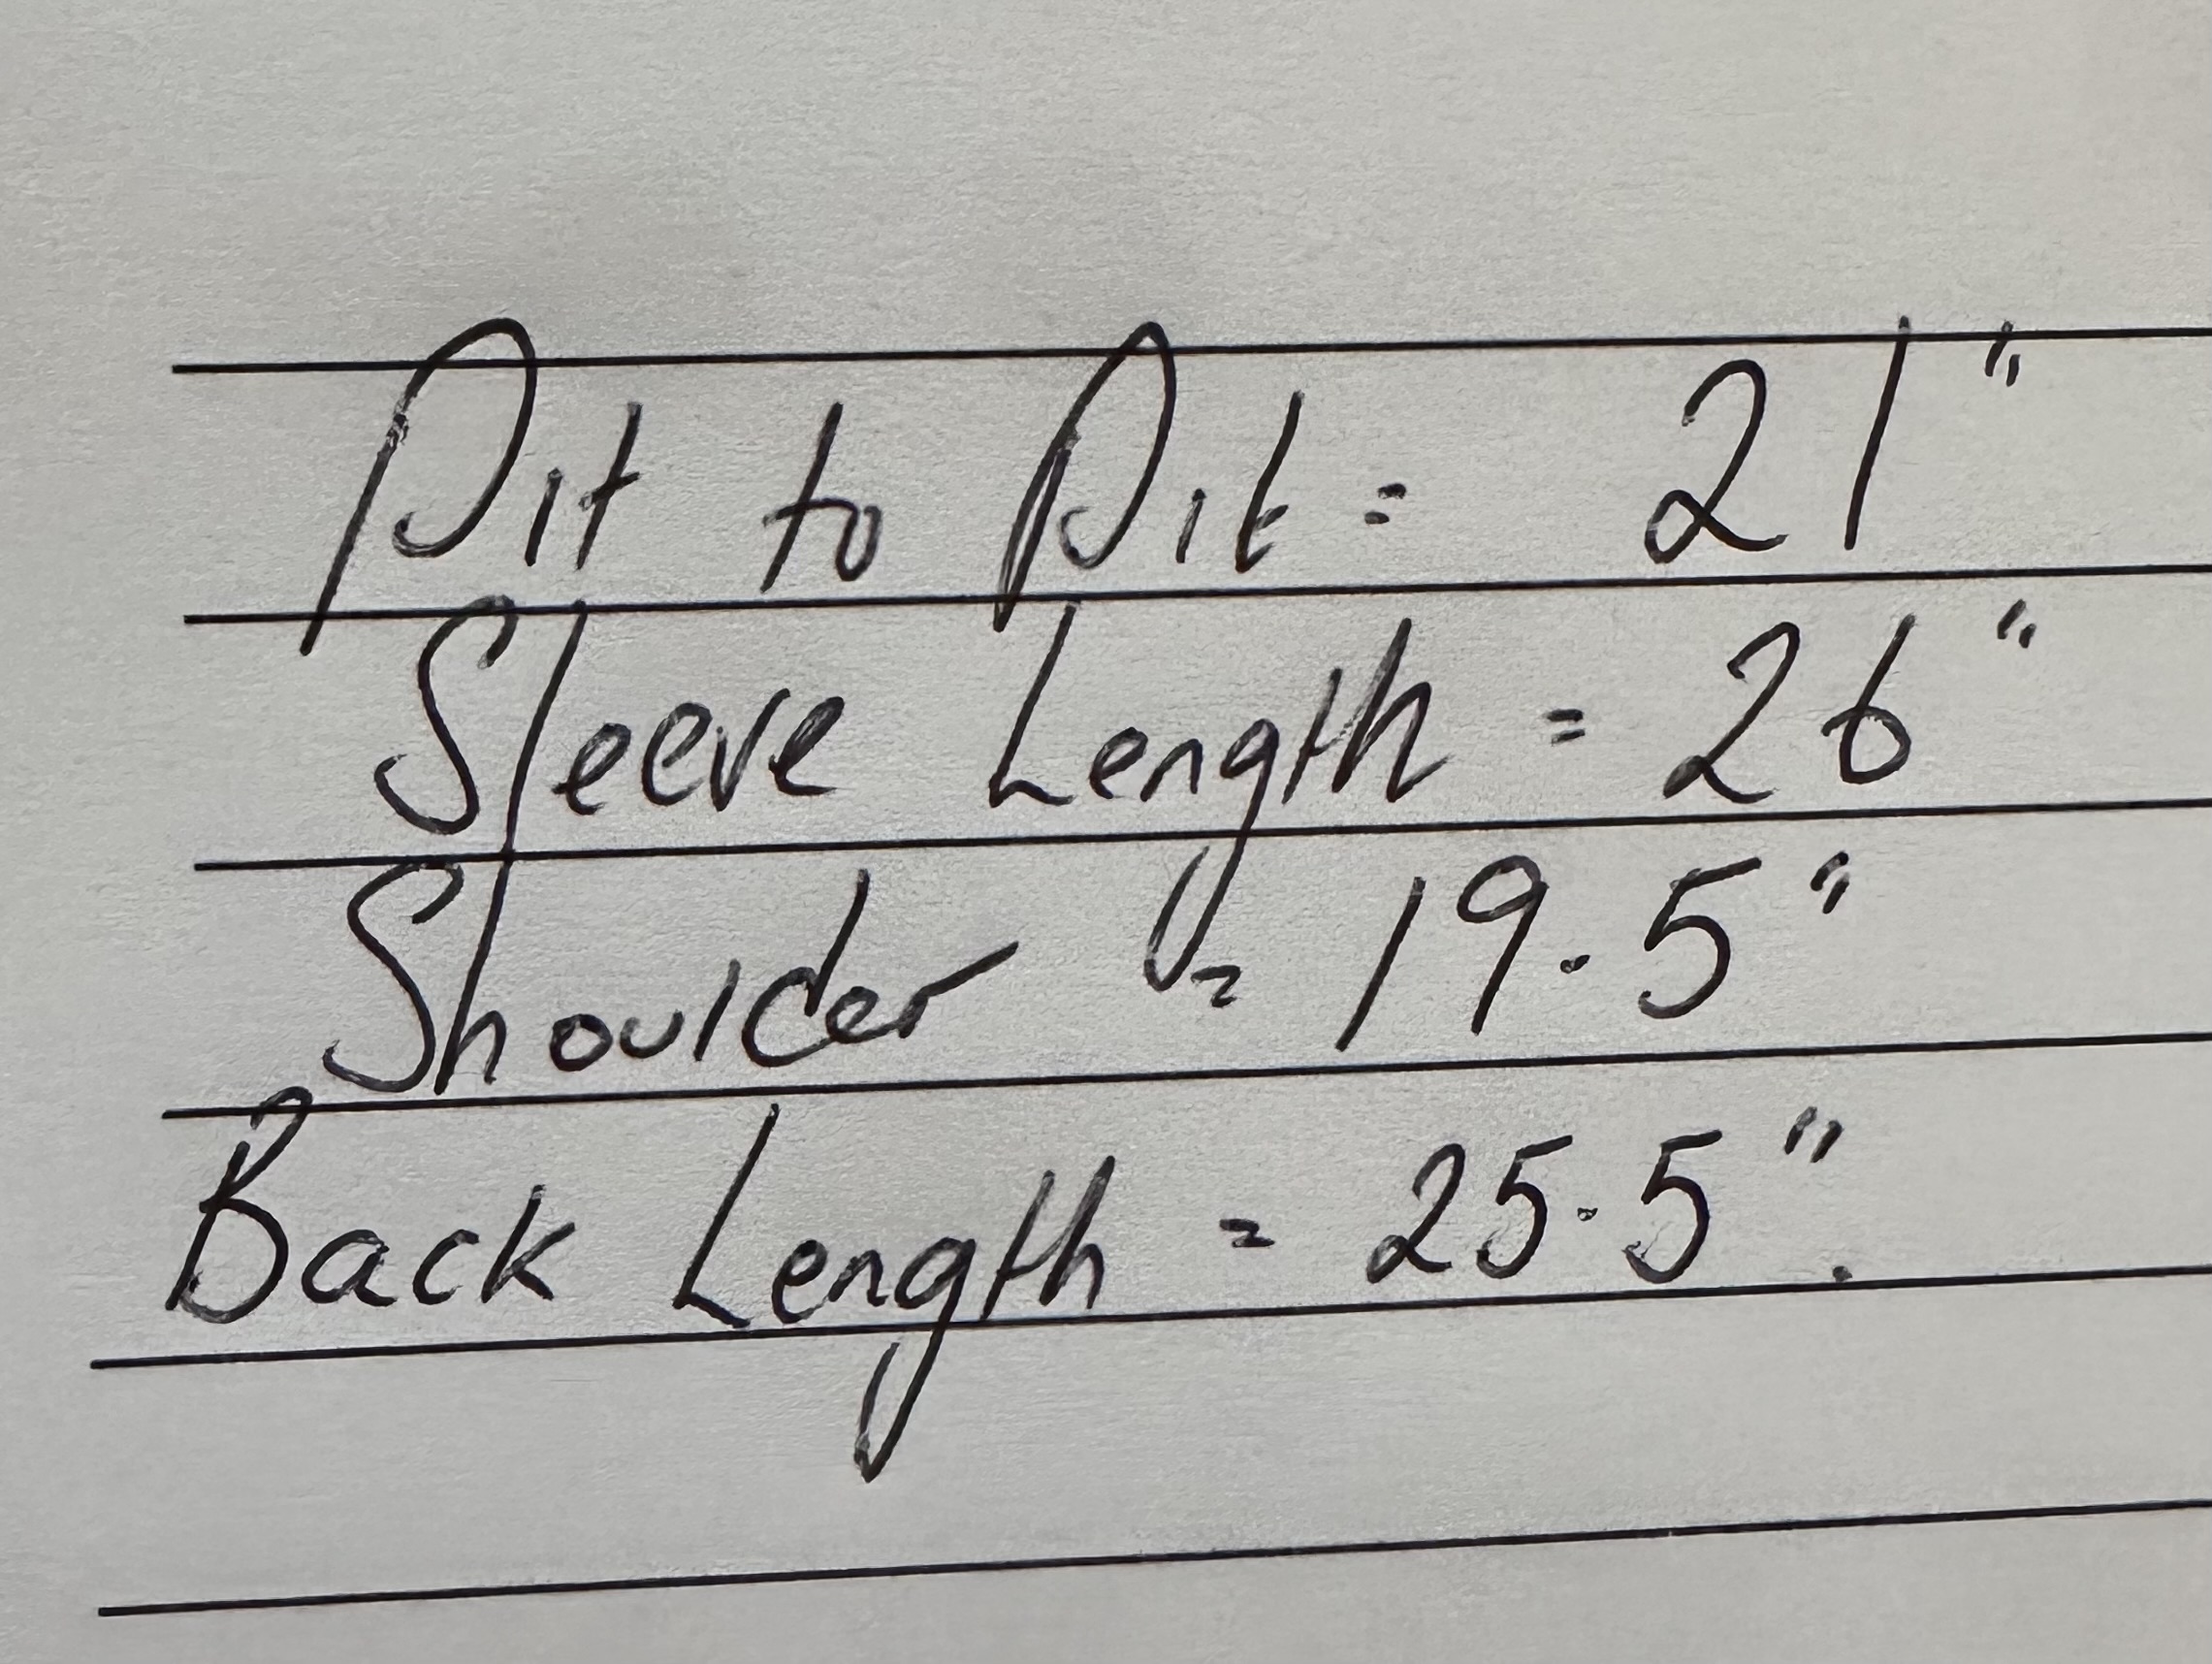 Pit to Pit = 21"
Sleeve Length = 26"
Shoulder = 19.5"
Back Length = 25.5".